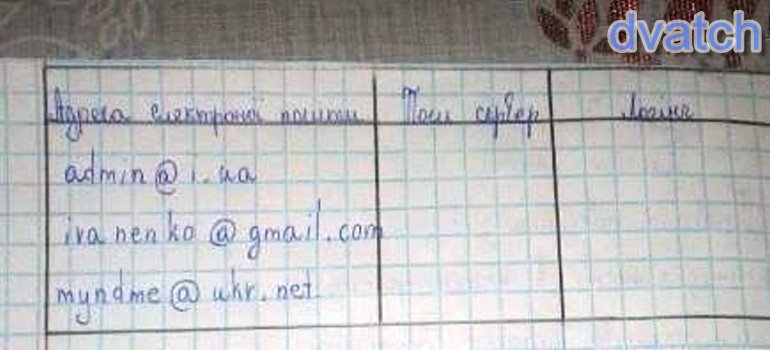 dvatch
Адреса електроної пошти Пош сервер Логіни
admin@i.ua
ivanenko@gmail.com
myndme@ukr.net